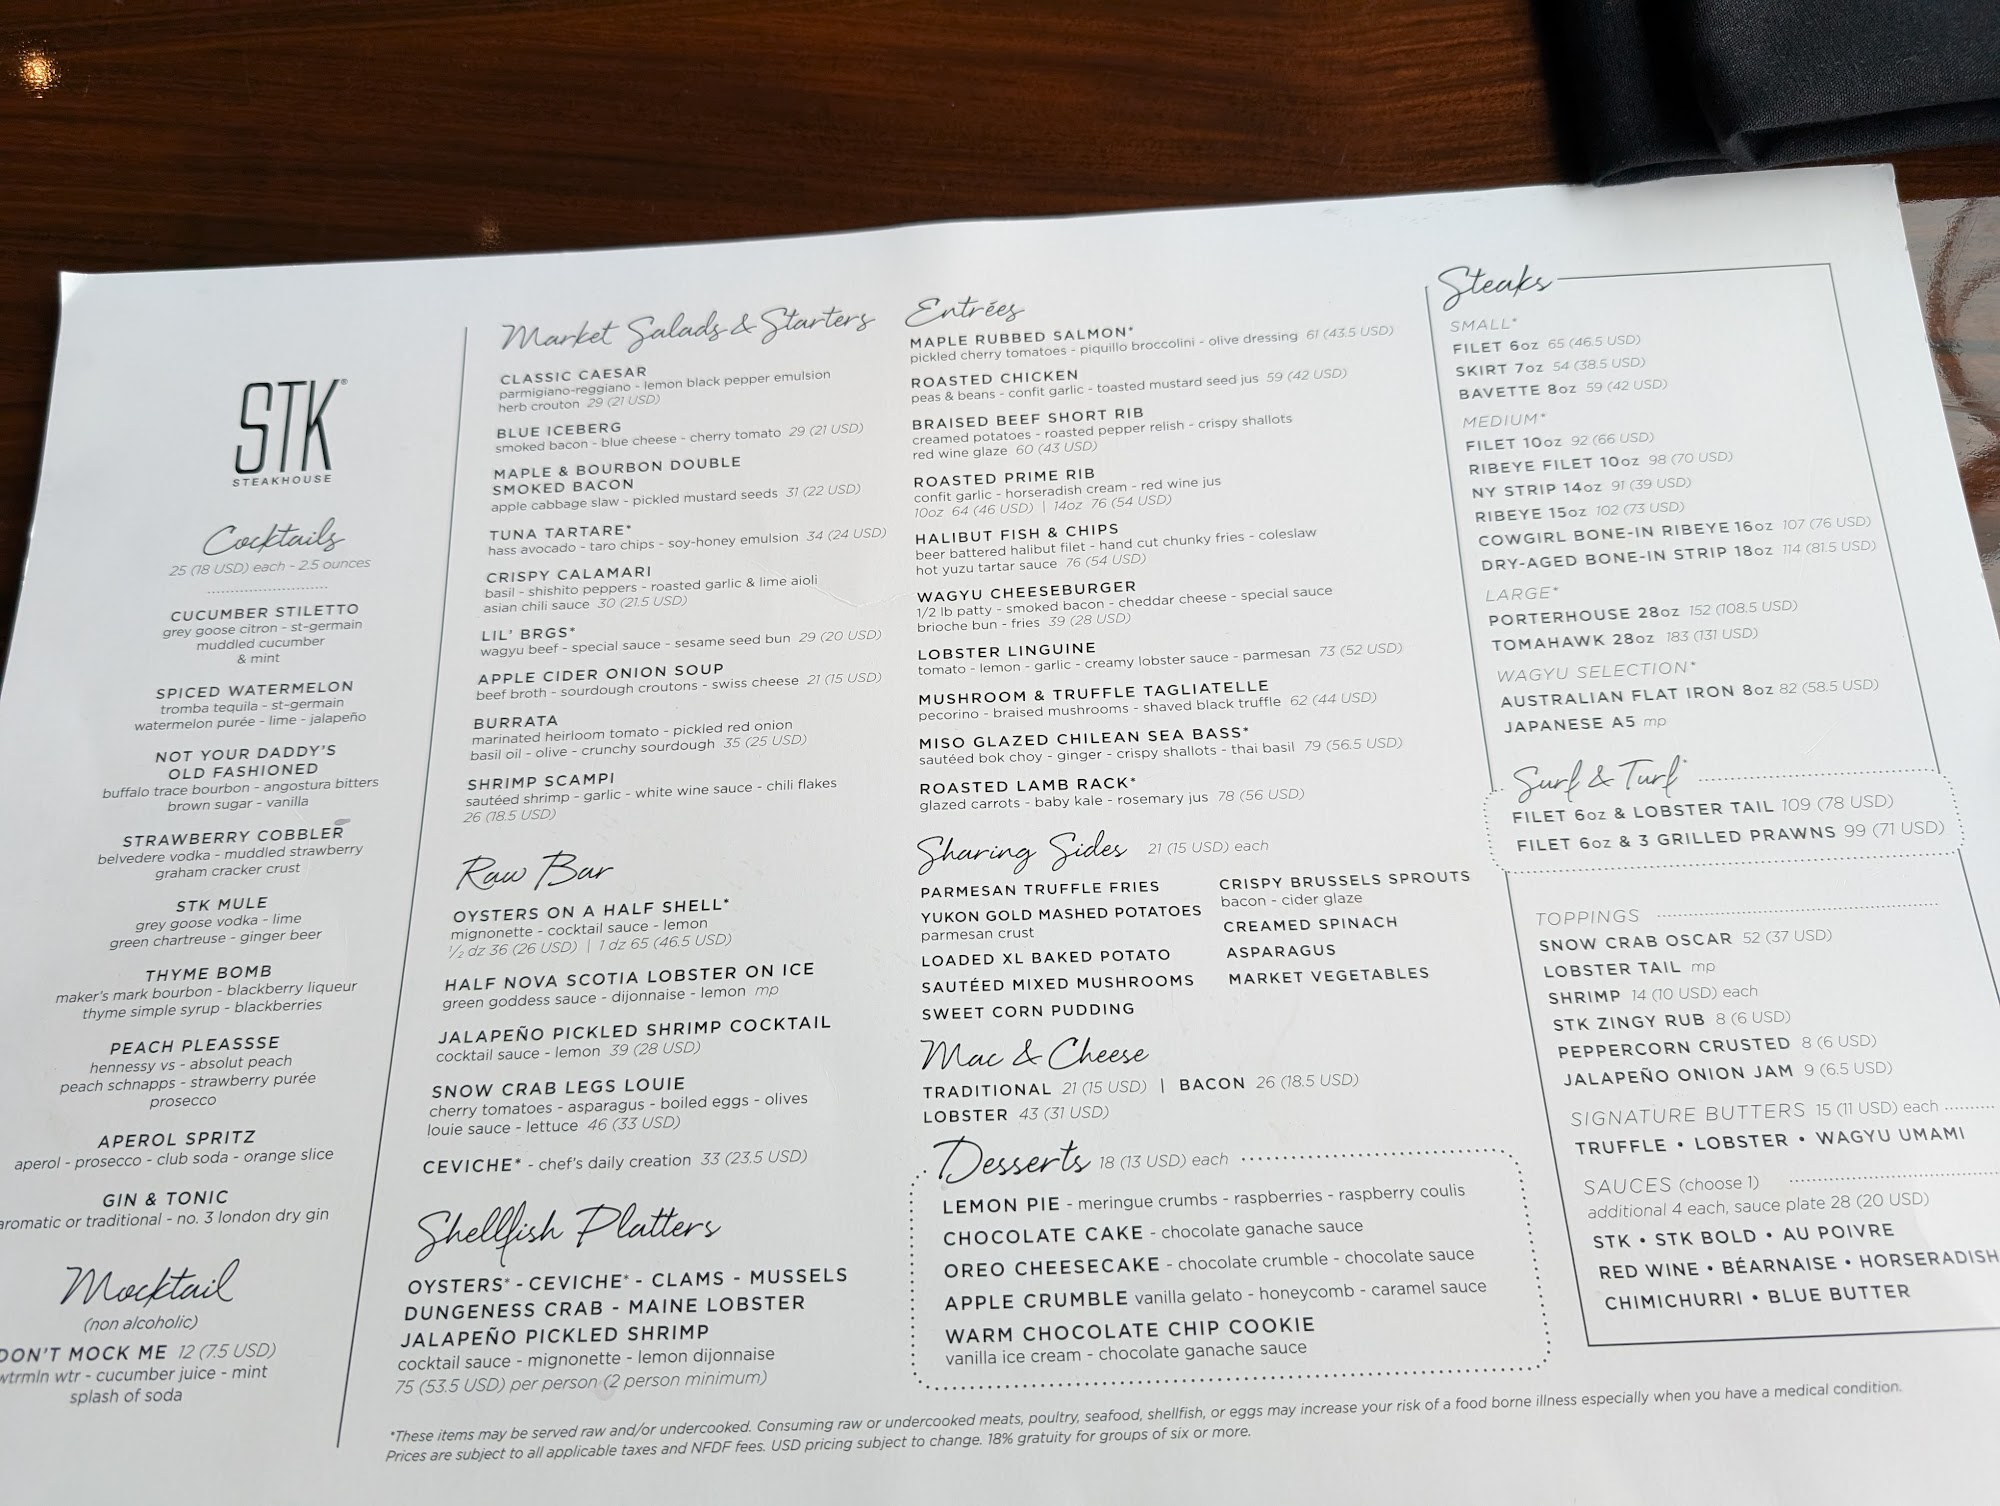 STK®
STEAKHOUSE
Cocktails
25 (18 USD) each - 2.5 ounces
CUCUMBER STILETTO
grey goose citron - st-germain
muddled cucumber
& mint
SPICED WATERMELON
tromba tequila - st-germain
watermelon purée - lime - jalapeño
NOT YOUR DADDY'S
OLD FASHIONED
buffalo trace bourbon - angostura bitters
brown sugar - vanilla
STRAWBERRY COBBLER
belvedere vodka - muddled strawberry
graham cracker crust
STK MULE
grey goose vodka - lime
green chartreuse - ginger beer
THYME BOMB
maker's mark bourbon - blackberry liqueur
thyme simple syrup - blackberries
PEACH PLEASSSE
hennessy vs - absolut peach
peach schnapps - strawberry purée
prosecco
APEROL SPRITZ
aperol - prosecco - club soda - orange slice
GIN & TONIC
aromatic or traditional - no. 3 london dry gin
Mocktail
(non alcoholic)
DON'T MOCK ME 12 (7.5 USD)
wtrmln wtr - cucumber juice - mint
splash of soda
Market Salads & Starters
CLASSIC CAESAR
parmigiano-reggiano - lemon black pepper emulsion
herb crouton 29 (21 USD)
BLUE ICEBERG
smoked bacon - blue cheese - cherry tomato 29 (21 USD)
MAPLE & BOURBON DOUBLE
SMOKED BACON
apple cabbage slaw - pickled mustard seeds 31 (22 USD)
TUNA TARTARE*
hass avocado - taro chips - soy-honey emulsion 34 (24 USD)
CRISPY CALAMARI
basil - shishito peppers - roasted garlic & lime aioli
asian chili sauce 30 (21.5 USD)
LIL' BRGS*
wagyu beef - special sauce - sesame seed bun 29 (20 USD)
APPLE CIDER ONION SOUP
beef broth - sourdough croutons - swiss cheese 21 (15 USD)
BURRATA
marinated heirloom tomato - pickled red onion
basil oil - olive - crunchy sourdough 35 (25 USD)
SHRIMP SCAMPI
sautéed shrimp - garlic - white wine sauce - chili flakes
26 (18.5 USD)
Raw Bar
OYSTERS ON A HALF SHELL*
mignonette - cocktail sauce - lemon
½ dz 36 (26 USD) | 1 dz 65 (46.5 USD)
HALF NOVA SCOTIA LOBSTER ON ICE
green goddess sauce - dijonnaise - lemon mp
JALAPEÑO PICKLED SHRIMP COCKTAIL
cocktail sauce - lemon 39 (28 USD)
SNOW CRAB LEGS LOUIE
cherry tomatoes - asparagus - boiled eggs - olives
louie sauce - lettuce 46 (33 USD)
CEVICHE* - chef's daily creation 33 (23.5 USD)
Shellfish Platters
OYSTERS* - CEVICHE* - CLAMS - MUSSELS
DUNGENESS CRAB - MAINE LOBSTER
JALAPEÑO PICKLED SHRIMP
cocktail sauce - mignonette - lemon dijonnaise
75 (53.5 USD) per person (2 person minimum)
Entrées
MAPLE RUBBED SALMON*
pickled cherry tomatoes - piquillo broccolini - olive dressing 61 (43.5 USD)
ROASTED CHICKEN
peas & beans - confit garlic - toasted mustard seed jus 59 (42 USD)
BRAISED BEEF SHORT RIB
creamed potatoes - roasted pepper relish - crispy shallots
red wine glaze 60 (43 USD)
ROASTED PRIME RIB
confit garlic - horseradish cream - red wine jus
10oz 64 (46 USD) | 14oz 76 (54 USD)
HALIBUT FISH & CHIPS
beer battered halibut filet - hand cut chunky fries - coleslaw
hot yuzu tartar sauce 76 (54 USD)
WAGYU CHEESEBURGER
1/2 lb patty - smoked bacon - cheddar cheese - special sauce
brioche bun - fries 39 (28 USD)
LOBSTER LINGUINE
tomato - lemon - garlic - creamy lobster sauce - parmesan 73 (52 USD)
MUSHROOM & TRUFFLE TAGLIATELLE
pecorino - braised mushrooms - shaved black truffle 62 (44 USD)
MISO GLAZED CHILEAN SEA BASS*
sautéed bok choy - ginger - crispy shallots - thai basil 79 (56.5 USD)
ROASTED LAMB RACK*
glazed carrots - baby kale - rosemary jus 78 (56 USD)
Sharing Sides 21 (15 USD) each
PARMESAN TRUFFLE FRIES
YUKON GOLD MASHED POTATOES
parmesan crust
LOADED XL BAKED POTATO
SAUTÉED MIXED MUSHROOMS
SWEET CORN PUDDING
CRISPY BRUSSELS SPROUTS
bacon - cider glaze
CREAMED SPINACH
ASPARAGUS
MARKET VEGETABLES
Mac & Cheese
TRADITIONAL 21 (15 USD) | BACON 26 (18.5 USD)
LOBSTER 43 (31 USD)
Desserts 18 (13 USD) each
LEMON PIE - meringue crumbs - raspberries - raspberry coulis
CHOCOLATE CAKE - chocolate ganache sauce
OREO CHEESECAKE - chocolate crumble - chocolate sauce
APPLE CRUMBLE vanilla gelato - honeycomb - caramel sauce
WARM CHOCOLATE CHIP COOKIE
vanilla ice cream - chocolate ganache sauce
Steaks
SMALL*
FILET 6oz 65 (46.5 USD)
SKIRT 7oz 54 (38.5 USD)
BAVETTE 8oz 59 (42 USD)
MEDIUM*
FILET 10oz 92 (66 USD)
RIBEYE FILET 10oz 98 (70 USD)
NY STRIP 14oz 91 (39 USD)
RIBEYE 15oz 102 (73 USD)
COWGIRL BONE-IN RIBEYE 16oz 107 (76 USD)
DRY-AGED BONE-IN STRIP 18oz 114 (81.5 USD)
LARGE*
PORTERHOUSE 28oz 152 (108.5 USD)
TOMAHAWK 28oz 183 (131 USD)
WAGYU SELECTION*
AUSTRALIAN FLAT IRON 8oz 82 (58.5 USD)
JAPANESE A5 mp
Surf & Turf*
FILET 6oz & LOBSTER TAIL 109 (78 USD)
FILET 6oz & 3 GRILLED PRAWNS 99 (71 USD)
TOPPINGS
SNOW CRAB OSCAR 52 (37 USD)
LOBSTER TAIL mp
SHRIMP 14 (10 USD) each
STK ZINGY RUB 8 (6 USD)
PEPPERCORN CRUSTED 8 (6 USD)
JALAPEÑO ONION JAM 9 (6.5 USD)
SIGNATURE BUTTERS 15 (11 USD) each
TRUFFLE • LOBSTER • WAGYU UMAMI
SAUCES (choose 1)
additional 4 each, sauce plate 28 (20 USD)
STK • STK BOLD • AU POIVRE
RED WINE • BÉARNAISE • HORSERADISH
CHIMICHURRI • BLUE BUTTER
*These items may be served raw and/or undercooked. Consuming raw or undercooked meats, poultry, seafood, shellfish, or eggs may increase your risk of a food borne illness especially when you have a medical condition.
Prices are subject to all applicable taxes and NFDF fees. USD pricing subject to change. 18% gratuity for groups of six or more.